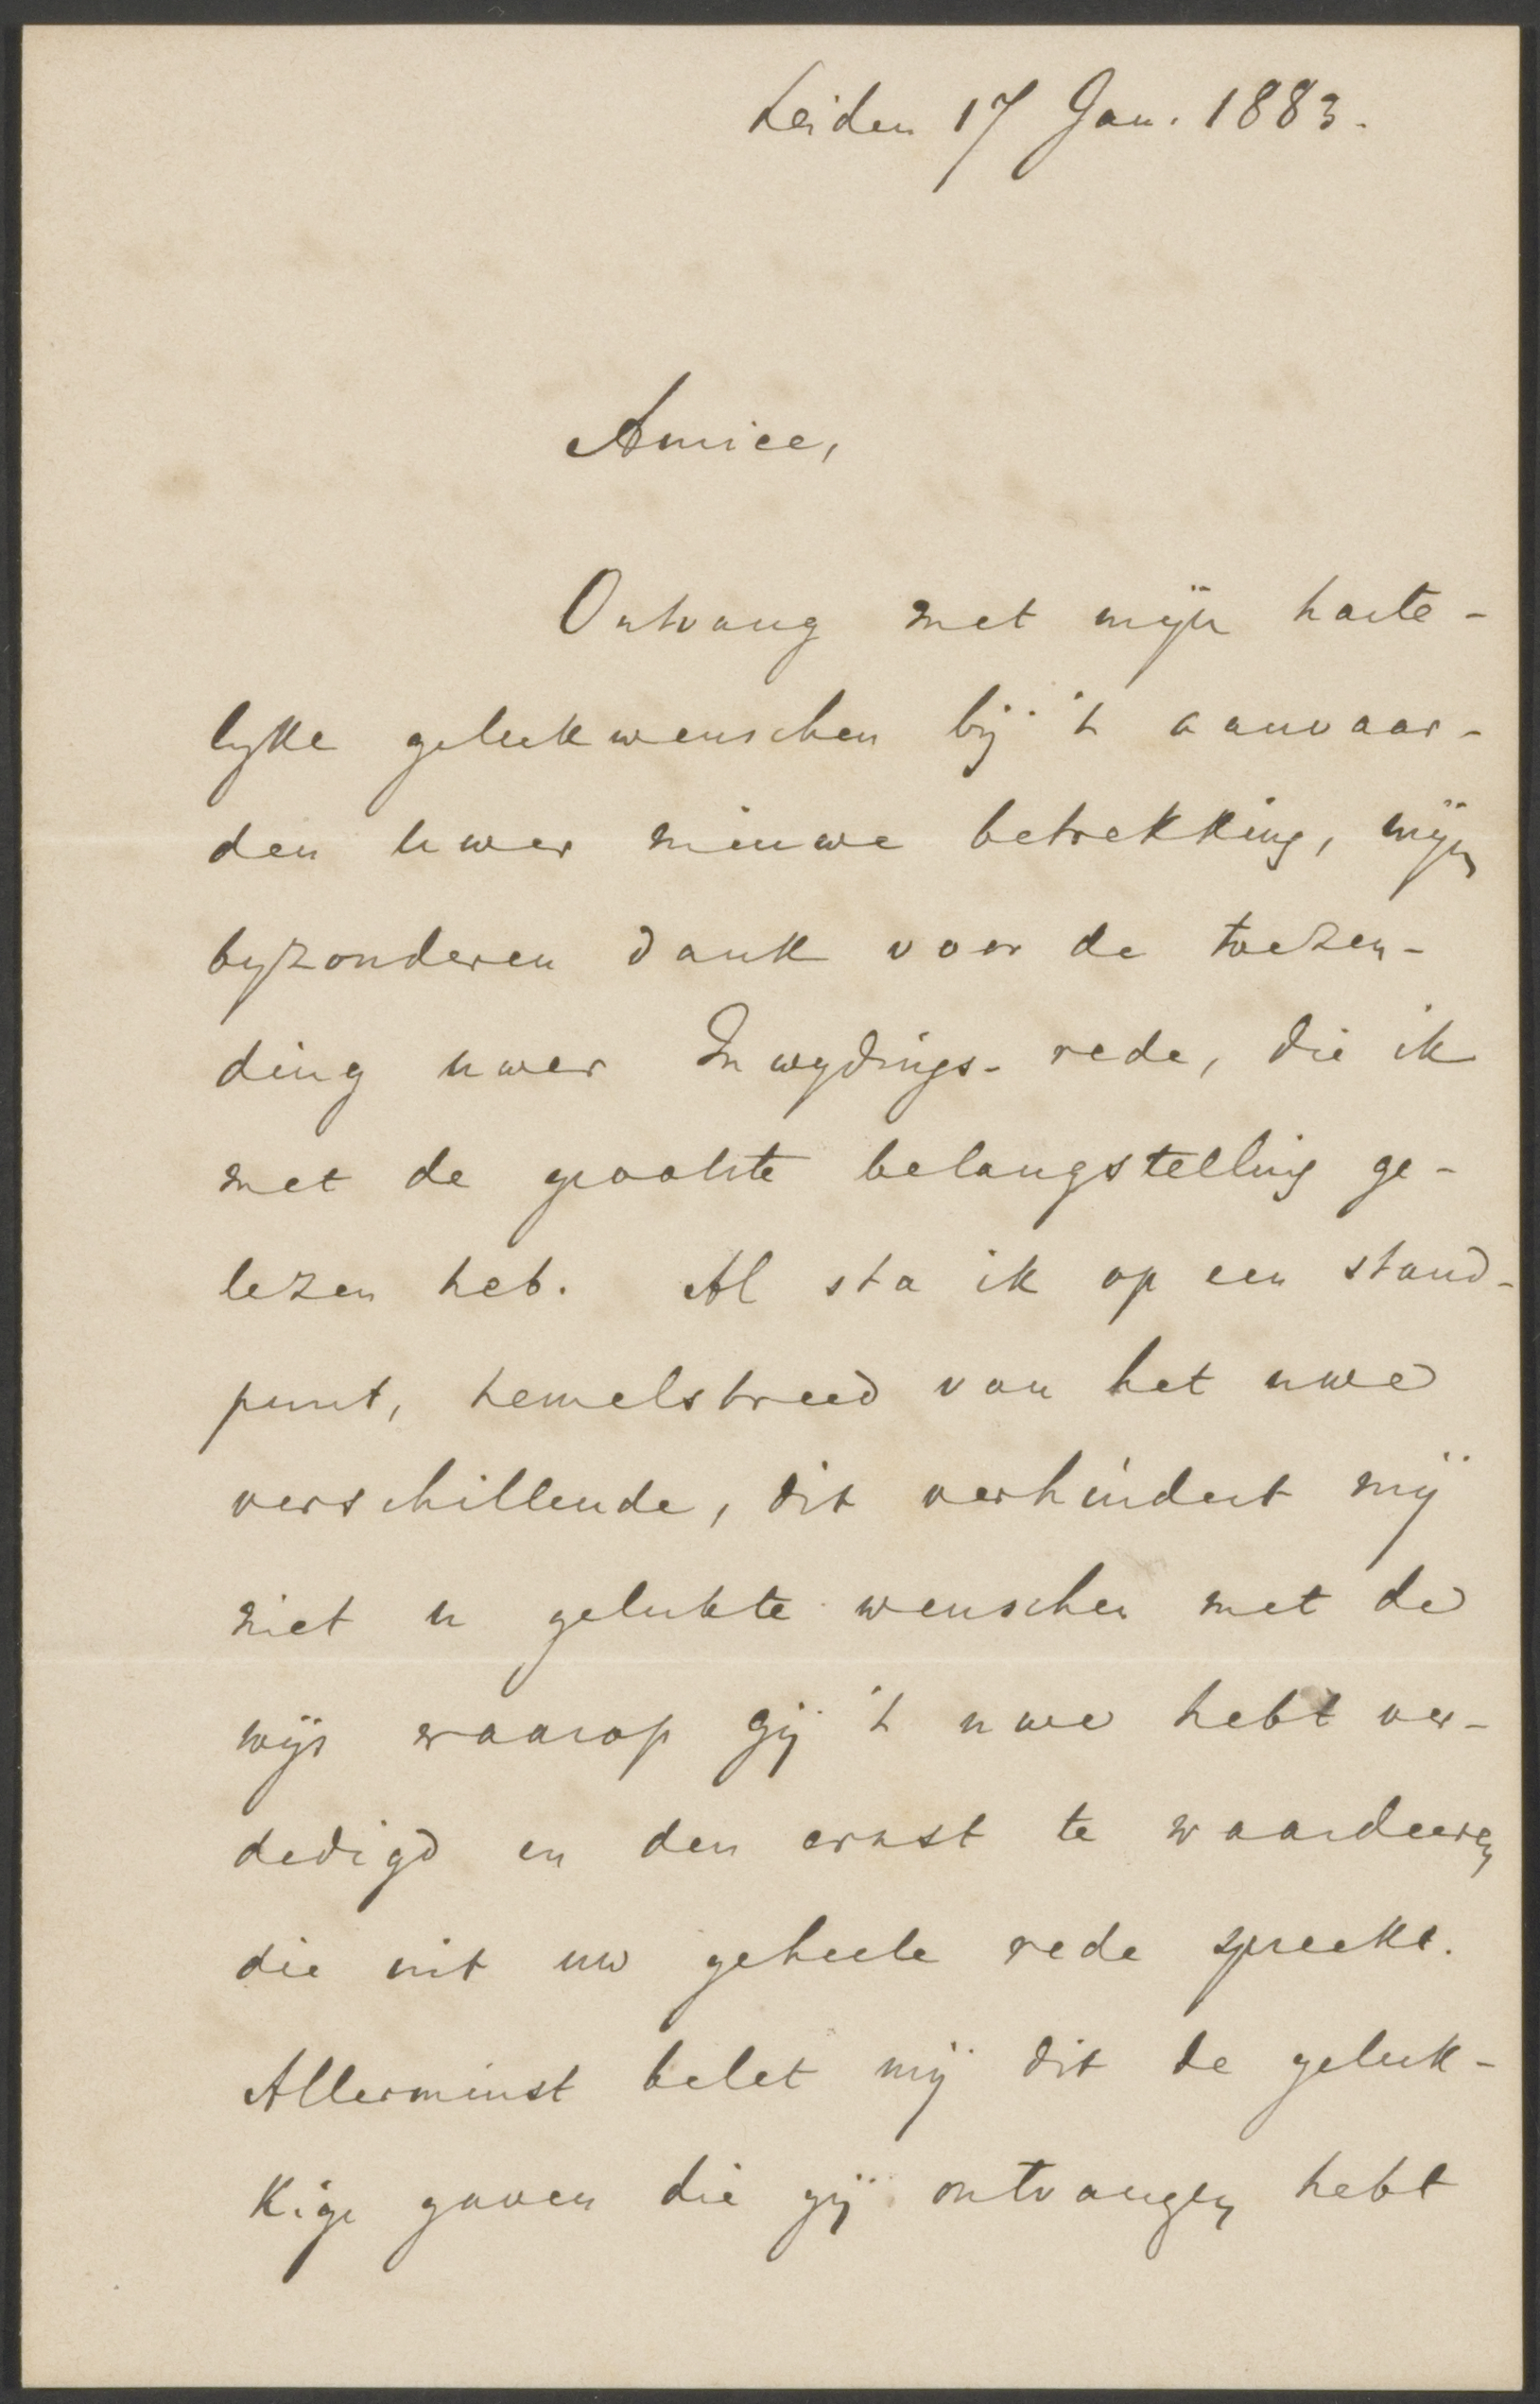 Leiden 17 Jan. 1883.
Amice,
Ontvang met mijn harte-
lyke gelukwenschen bij 't aanvaar-
den uwer nieuwe betrekking, mijn
byzonderen dank voor de toezen-
ding uwer Inwydings-rede, die ik
met de grootste belangstelling ge-
lezen heb. Al sta ik op een stand-
punt, hemelsbreed van het uwe
verschillende, dit verhindert mij
niet u geluk te wenschen met de
wijs waarop gij 't uwe hebt ver-
dedigd en den ernst te waardeeren
die uit uw geheele rede spreekt.
Allerminst belet mij dit de geluk-
kige gaven die gij ontvangen hebt